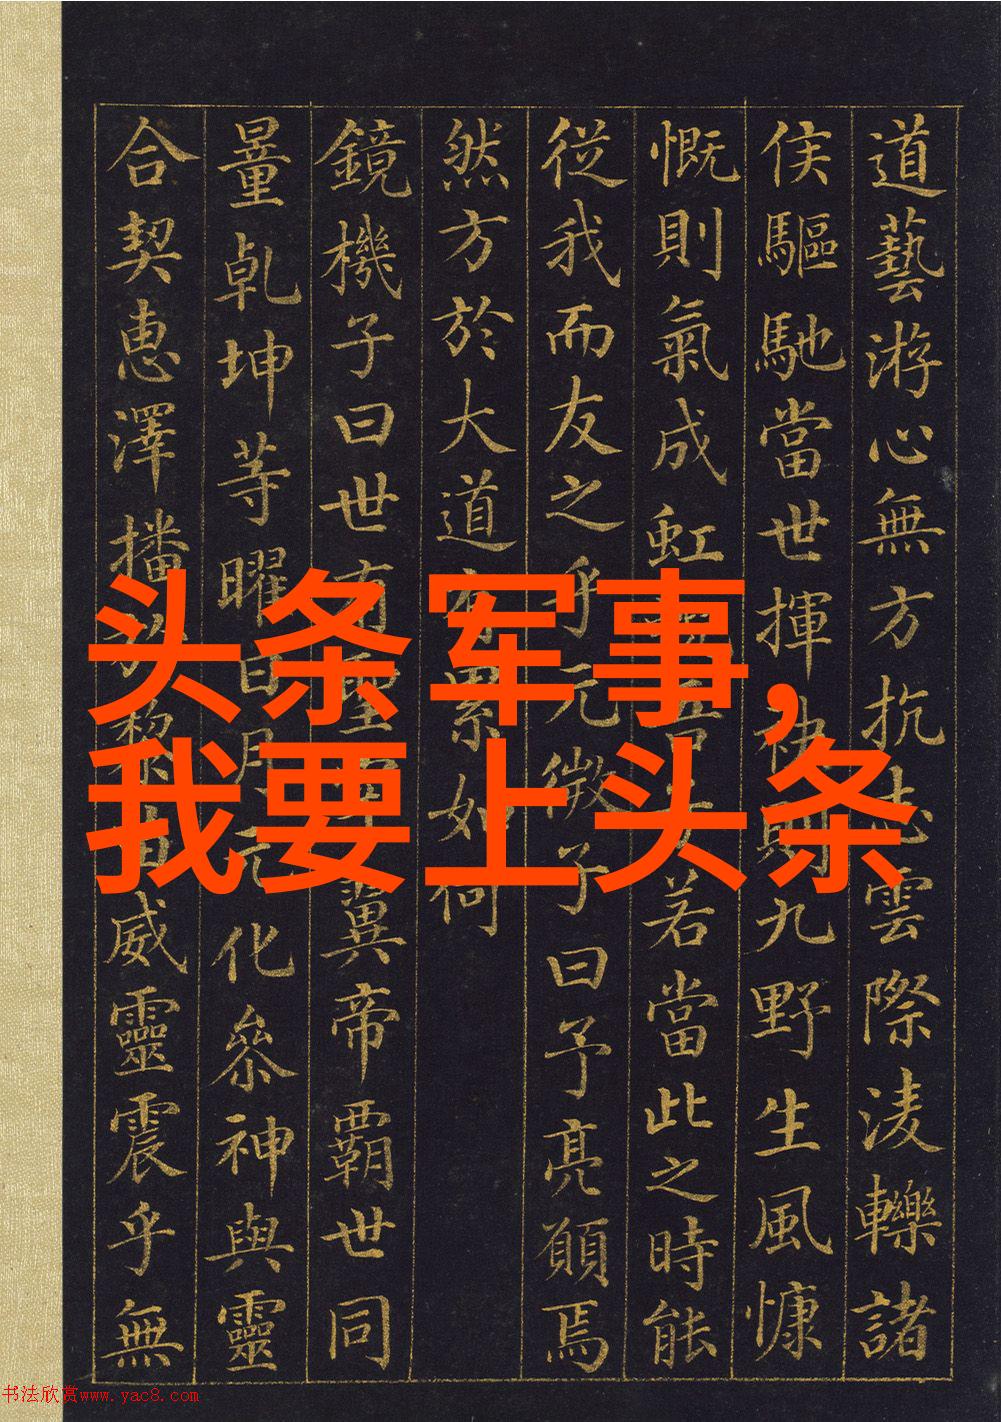 道藝游心無方抗志雲際淩轢諸
侯驅馳當世揮袂則九野生風慷
慨則氣成虹若當此之時能
從我而友之乎元微子曰予亮願焉
然方於大道有累如何
鏡機子曰世有聖翼帝霸世同
量乾坤等曜日月元化叅神與靈
合契惠澤播於黎苗威靈震乎無
头条军事，
我要上头条
书法欣赏www.yac8.com